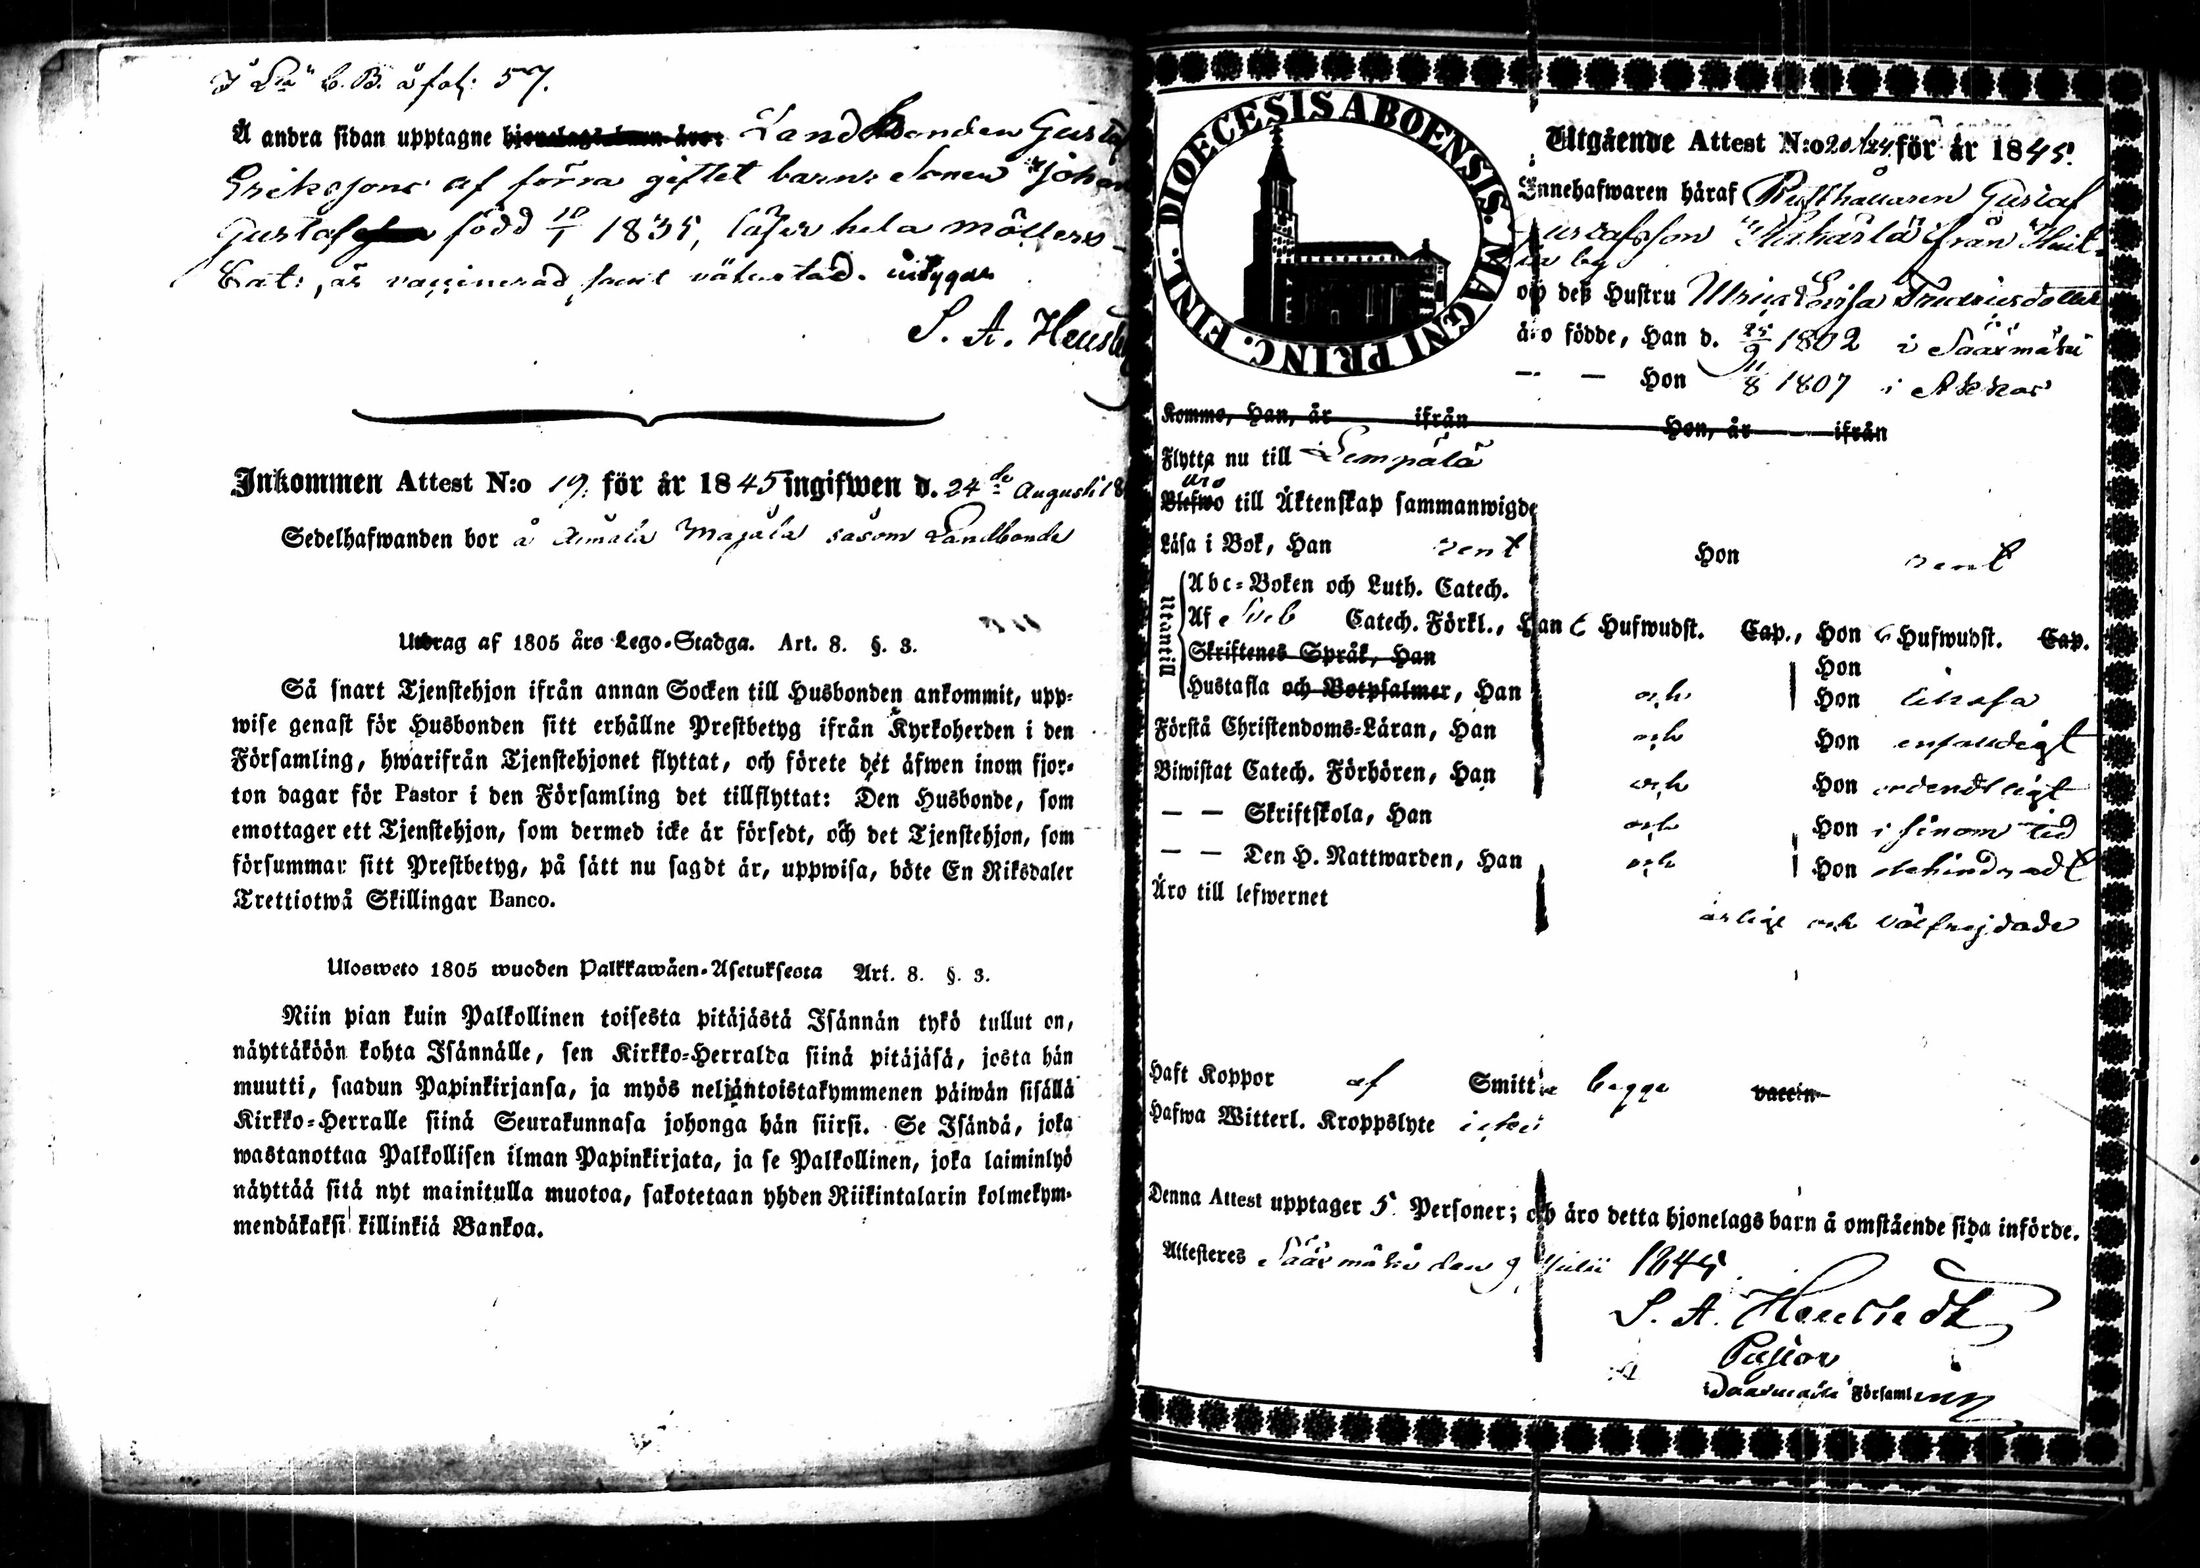 I Lia C. B. å fol: 57.
Å andra sidan upptagne hjonelags barn äro: Landbonden Gustaf
Erikssons af förra giftet barn: Sonen Johan
Gustaf född 10/1 1835, läser hela Möllers
Cat:, är vaccinerad, samt
S. A. Heusb
Inkommen Attest N:o 19. för år 1845 ingifwen d. 24 de Augusti 18
Sedelhafwanden bor å Aimala Majala såsom Landbonde
Utdrag af 1805 års Lego-Stadga. Art. 8. §. 3.
Så snart Tjenstehjon ifrån annan Socken till Husbonden ankommit, upp=
wise genast för Husbonden sitt erhållne Prestbetyg ifrån Kyrkoherden i den
Församling, hwarifrån Tjenstehjonet flyttat, och förete det äfwen inom fjor=
ton dagar för Pastor i den Församling det tillflyttat: Den Husbonde, som
emottager ett Tjenstehjon, som dermed icke är försedt, och det Tjenstehjon, som
försummar sitt Prestbetyg, på sätt nu sagdt är, uppwisa, böte En Riksdaler
Trettiotwå Skillingar Banco.
Ulosweto 1805 wuoden Palkkawäen-Asetuksesta Art. 8. §. 3.
Niin pian kuin Palkollinen toisesta pitäjästä Isännän tykö tullut on,
näyttäköön kohta Isännälle, sen Kirkko=Herralda siinä pitäjäsä, josta hän
muutti, saadun Papinkirjansa, ja myös neljäntoistakymmenen päiwän sisällä
Kirkko=Herralle siinä Seurakunnasa johonga hän siirsi. Se Isändä, joka
wastanottaa Palkollisen ilman Papinkirjata, ja se Palkollinen, joka laiminlyö
näyttää sitä nyt mainitulla muotoa, sakotetaan yhden Riikintalarin kolmekym=
mendäkaksi killinkiä Bankoa.
DIOECESIS ABOENSIS. MAGNI PRINC. FINL.
Utgående Attest N:o 20/124 för år 1845.
Innehafwaren häraf Rusthållaren Gustaf
Gustafsson Maharla ifrån Huit-
tu by
och deß Hustru Ulrica Lovisa Fredricsdotter
äro födde, Han d. 25/9 1802 i Sääxmäki
— — Hon 11/8 1807 i Akkas
Komme, Han, år ifrån Hon, år ifrån
Flytta nu till Lempälä
äro
Blefwo till Äktenskap sammanwigde
Läsa i Bok, Han rent Hon rent
Utantill
Abc=Boken och Luth. Catech.
Af Sveb Catech. Förkl., Han 6 Hufwudst. Cap., Hon 6 Hufwudst. Cap.
Skriftenes Språk, Han Hon
Hustafla och Botpsalmer, Han och Hon likasa
Förstå Christendoms=Läran, Han och Hon enfaldigt
Biwistat Catech. Förhören, Han och Hon ordentligt
— — Skriftskola, Han och Hon i sinom tid
— — Den H. Nattwarden, Han och Hon obehindradt
Äro till lefwernet
ärlige och välfrejdade
Haft Koppor af Smitta begge vaccin
Hafwa Witterl. Kroppslyte icke
Denna Attest upptager 5. Personer; och äro detta hjonelags barn å omstående sida införde.
Attesteres Sääxmäki den 9 Julii 1845.
S. A. Heurstedt
Pastor
i Sääxmäki Församling